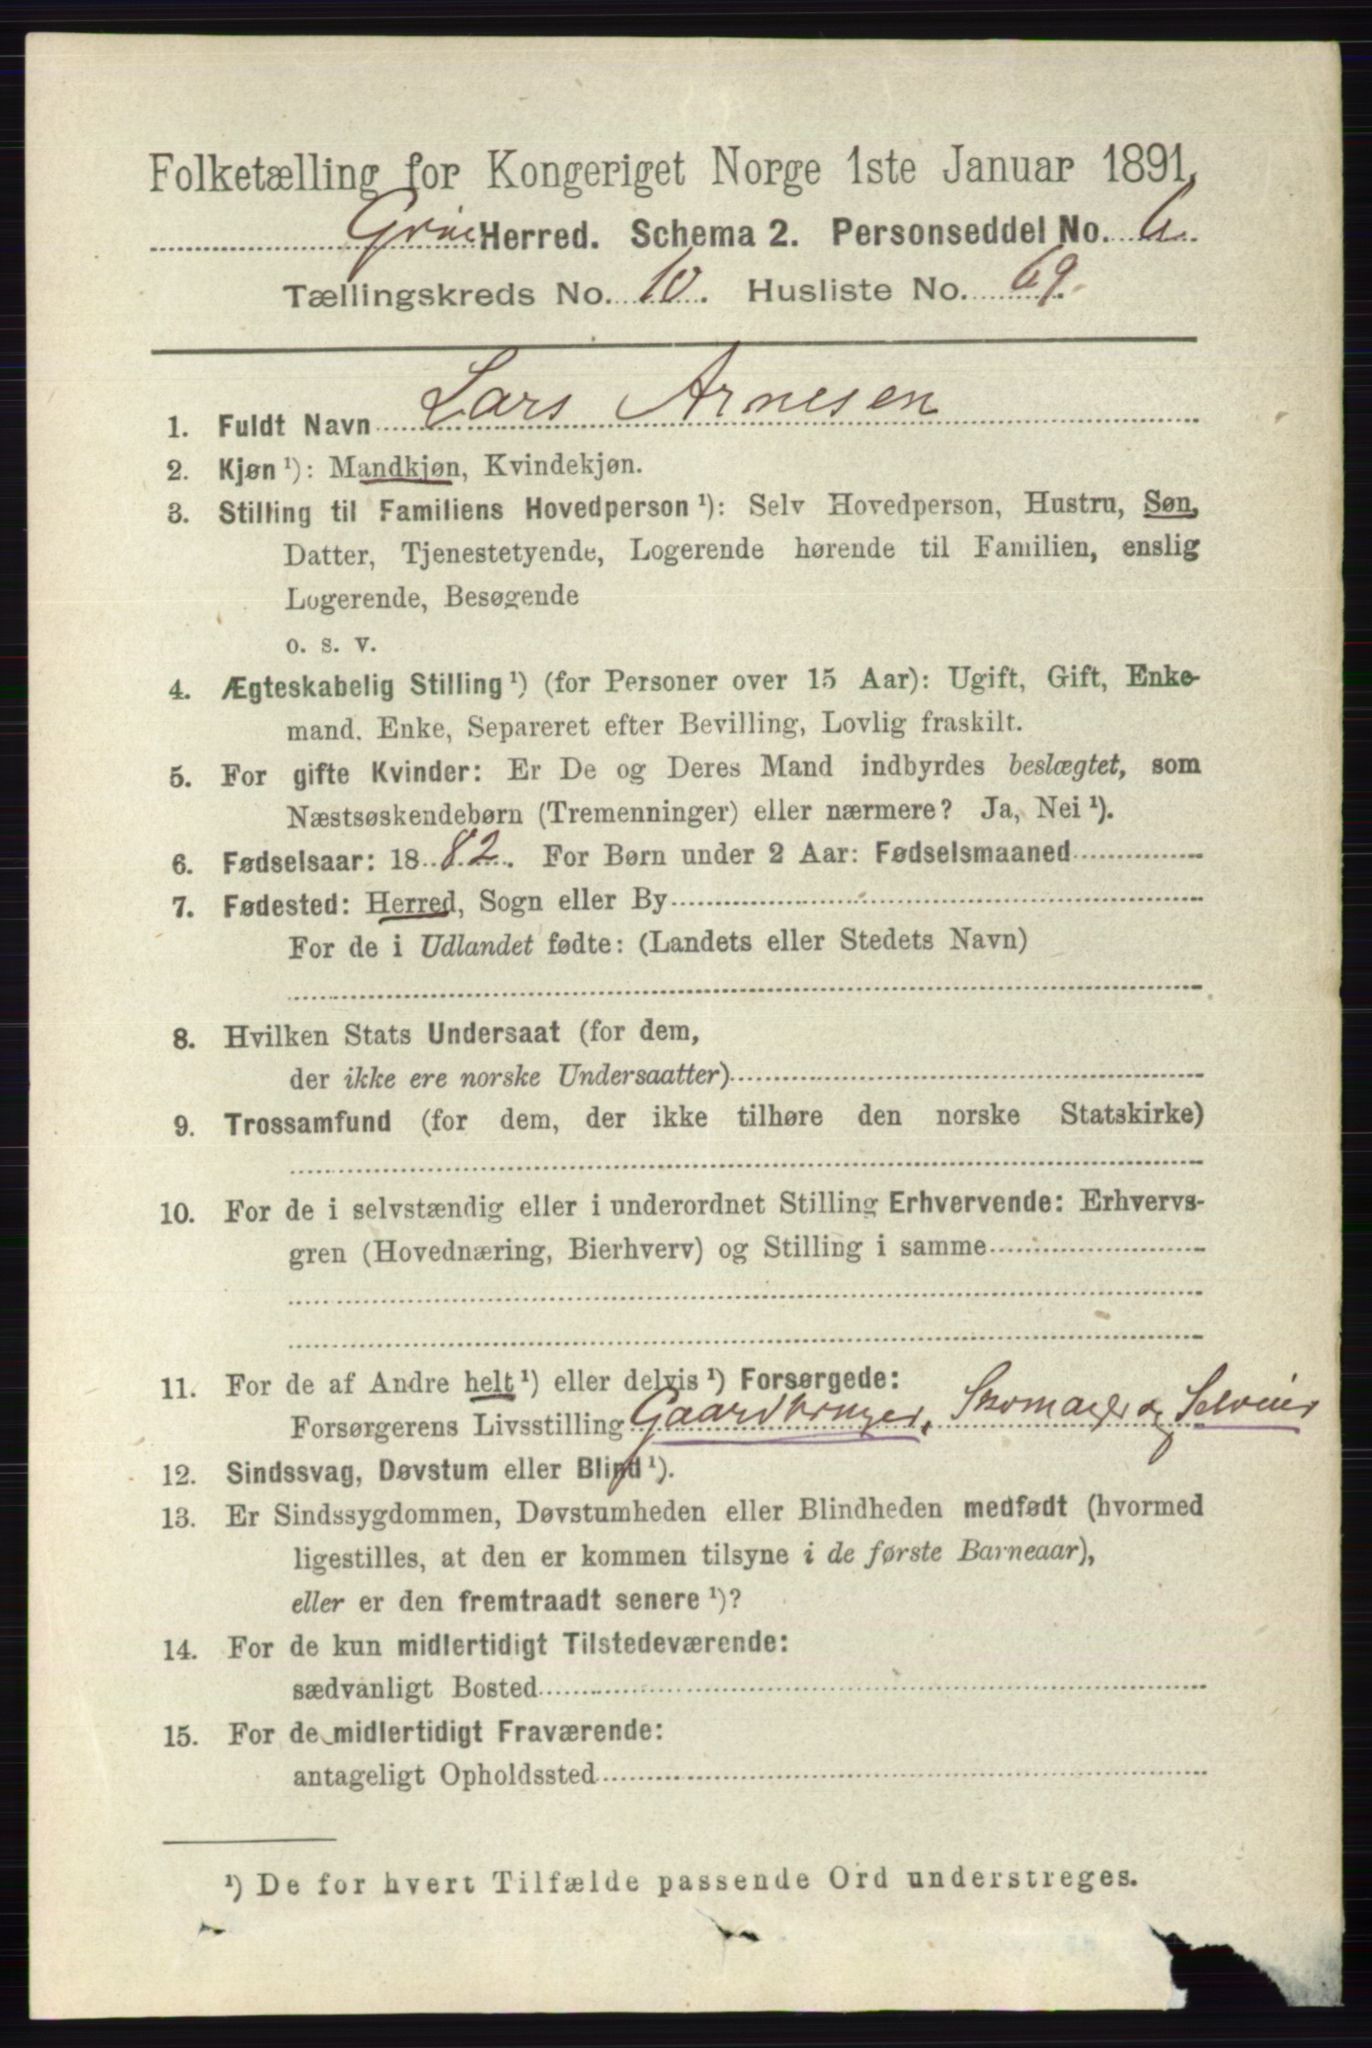 Folketælling for Kongeriget Norge 1ste Januar 1891.
Grue Herred. Schema 2. Personseddel No. 6.
Tællingskreds No. 10. Husliste No. 69.
1. Fuldt Navn Lars Arnesen
2. Kjøn ¹): Mandkjøn, Kvindekjøn.
3. Stilling til Familiens Hovedperson ¹): Selv Hovedperson, Hustru, Søn,
Datter, Tjenestetyende, Logerende hørende til Familien, enslig
Logerende, Besøgende
o. s. v.
4. Ægteskabelig Stilling ¹) (for Personer over 15 Aar): Ugift, Gift, Enke-
mand. Enke, Separeret efter Bevilling, Lovlig fraskilt.
5. For gifte Kvinder: Er De og Deres Mand indbyrdes beslægtet, som
Næstsøskendebørn (Tremenninger) eller nærmere? Ja, Nei ¹).
6. Fødselsaar: 1882. For Børn under 2 Aar: Fødselsmaaned
7. Fødested: Herred, Sogn eller By
For de i Udlandet fødte: (Landets eller Stedets Navn)
8. Hvilken Stats Undersaat (for dem,
der ikke ere norske Undersaatter)
9. Trossamfund (for dem, der ikke tilhøre den norske Statskirke)
10. For de i selvstændig eller i underordnet Stilling Erhvervende: Erhvervs-
gren (Hovednæring, Bierhverv) og Stilling i samme
11. For de af Andre helt ¹) eller delvis ¹) Forsørgede:
Forsørgerens Livsstilling Gaardbruger, Skomager og Seloeier
12. Sindssvag, Døvstum eller Blind ¹).
13. Er Sindssygdommen, Døvstumheden eller Blindheden medfødt (hvormed
ligestilles, at den er kommen tilsyne i de første Barneaar),
eller er den fremtraadt senere ¹)?
14. For de kun midlertidigt Tilstedeværende:
sædvanligt Bosted
15. For de midlertidigt Fraværende:
antageligt Opholdssted
¹) De for hvert Tilfælde passende Ord understreges.